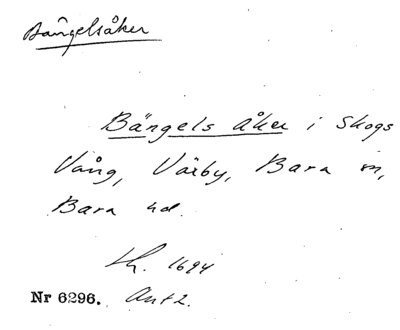 Bängelsåker
Bängels åker i Skogs
Vång, Värby, Bara sn,
Bara hd.
Lh. 1694
Nr 6296. Ant 2.